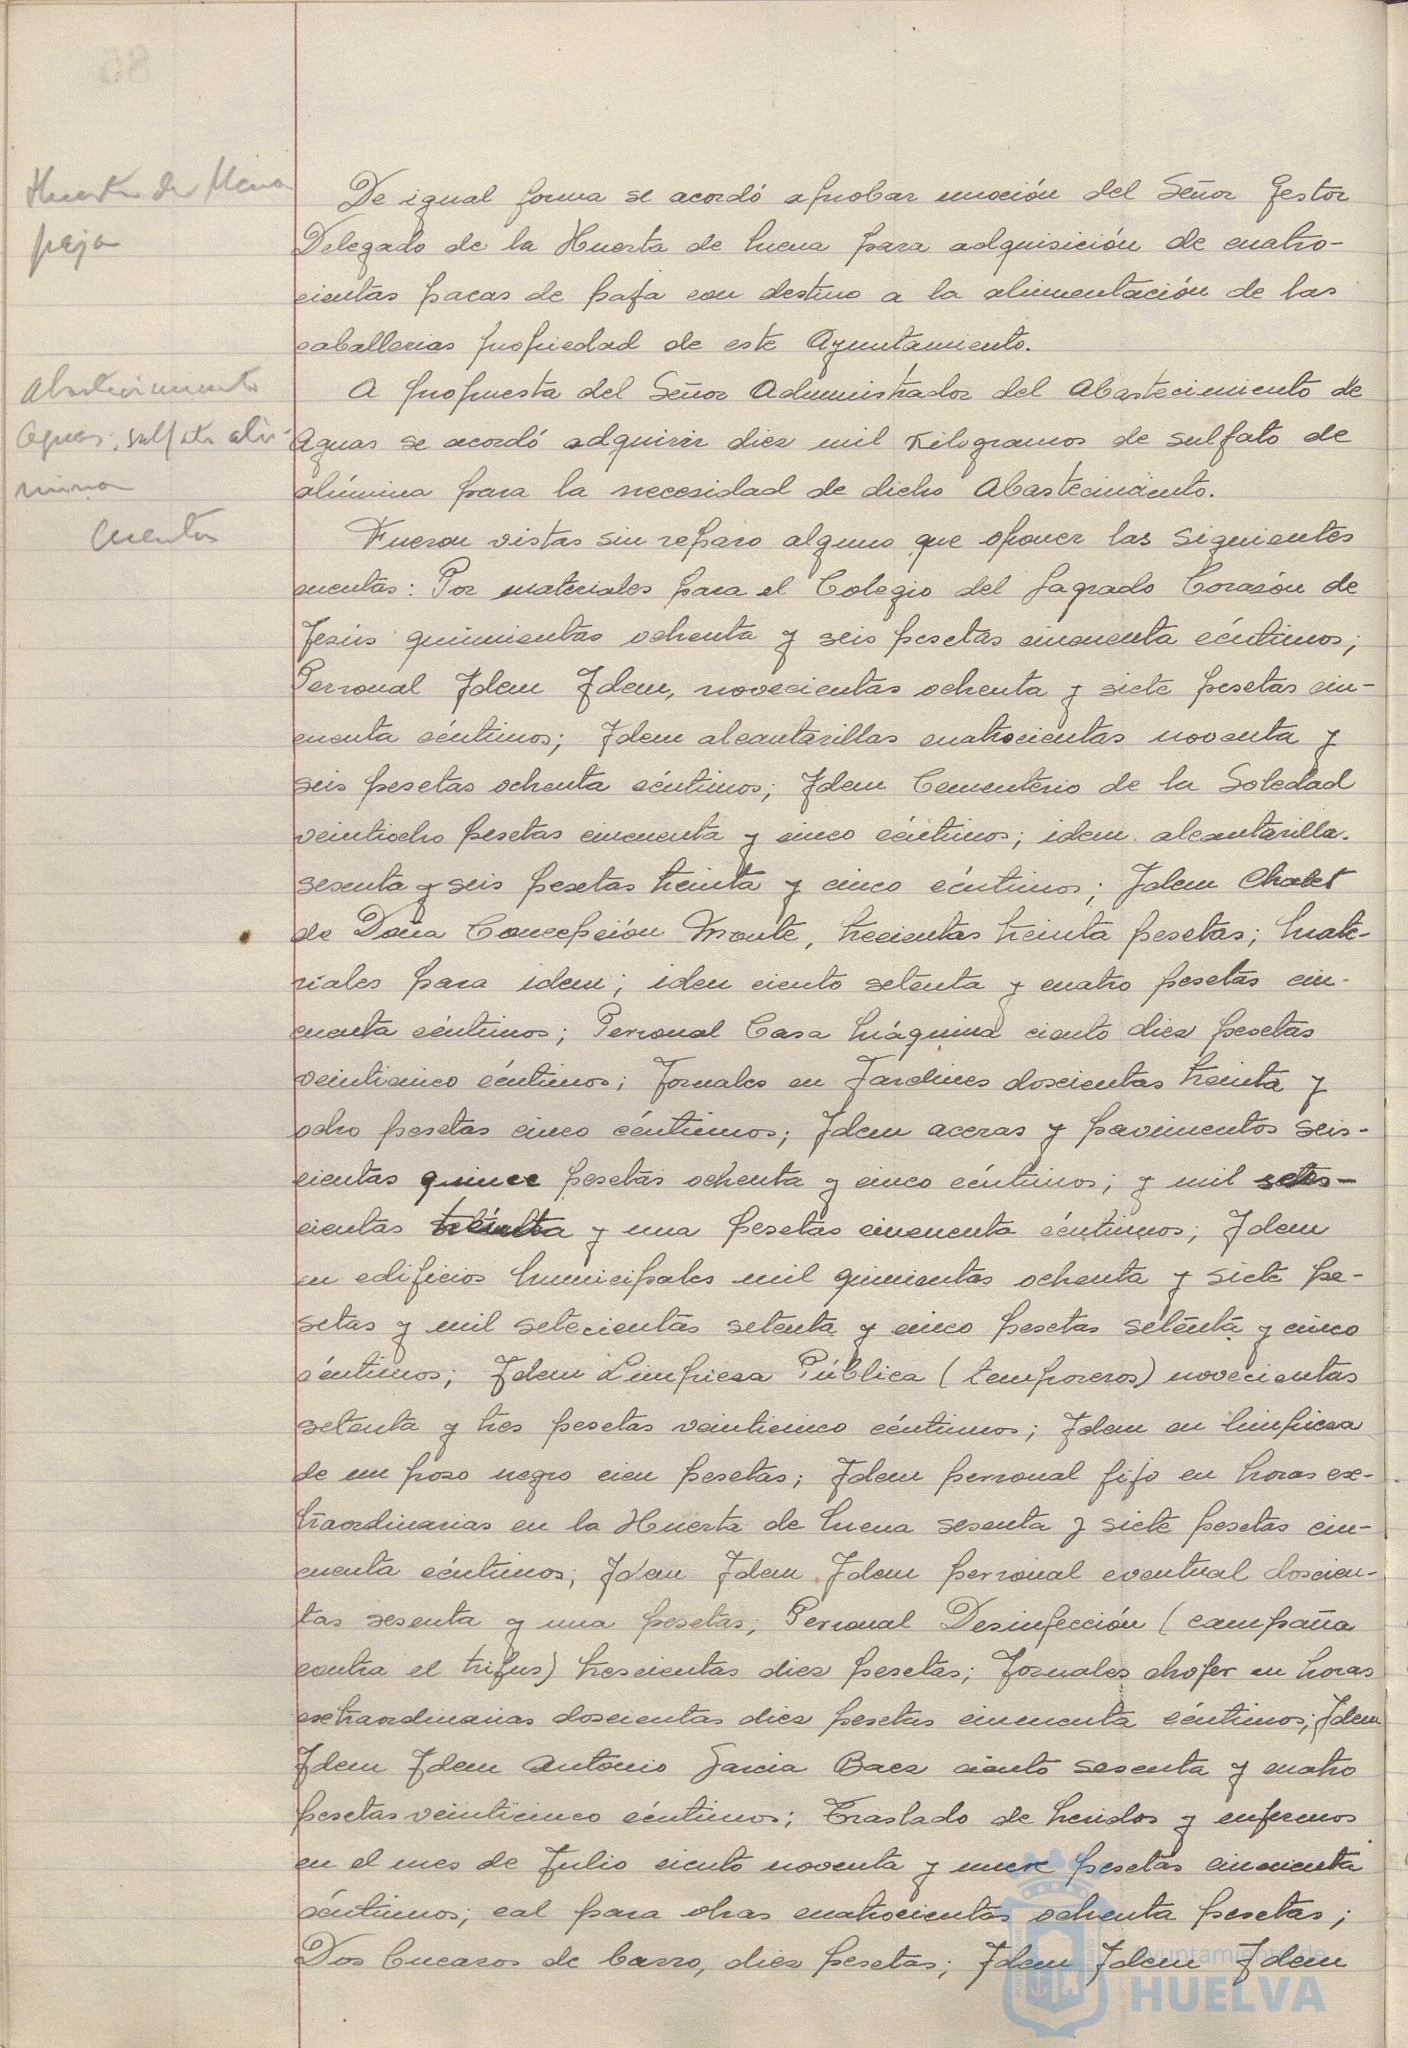 Huerta de Mena
paja
De igual forma se acordó aprobar moción del Señor Gestor
Delegado de la Huerta de Mena para adquisición de cuatro-
cientas pacas de paja con destino a la alimentación de las
caballerias propiedad de este Ayuntamiento.
Abastecimiento
Aguas: sulfato alú-
mina
A propuesta del Señor Administrador del Abastecimiento de
Aguas se acordó adquirir diez mil Kilogramos de sulfato de
alúmina para la necesidad de dicho Abastecimiento.
Cuentas
Fueron vistas sin reparo alguno que oponer las siguientes
cuentas: Por materiales para el Colegio del Sagrado Corazón de
Jesús quinientas ochenta y seis pesetas cincuenta céntimos;
Personal Idem Idem, novecientas ochenta y siete pesetas cin-
cuenta céntimos; Idem alcantarillas cuatrocientas noventa y
seis pesetas ochenta céntimos; Idem Cementerio de la Soledad
veintiocho pesetas cincuenta y cinco céntimos; idem alcantarilla.
sesenta y seis pesetas treinta y cinco céntimos; Idem Chalet
de Doña Concepción Monte, trecientas treinta pesetas; Mate-
riales para idem; idem ciento setenta y cuatro pesetas cin-
cuenta céntimos; Personal Casa Máquina ciento diez pesetas
veinticinco céntimos; Jornales en Jardines doscientas treinta y
ocho pesetas cinco céntimos; Idem aceras y pavimentos seis-
cientas quince pesetas ochenta y cinco céntimos; y mil setes-
cientas treinta y una pesetas cincuenta céntimos; Idem
en edificios Municipales mil quinientas ochenta y siete pe-
setas y mil setecientas setenta y cinco pesetas setenta y cinco
céntimos; Idem Limpieza Pública (temporeros) novecientas
setenta y tres pesetas veinticinco céntimos; Idem en limpieza
de un pozo negro cien pesetas; Idem personal fijo en horas ex-
traordinarias en la Huerta de Mena sesenta y siete pesetas cin-
cuenta céntimos; Idem Idem Idem personal eventual doscien-
tas sesenta y una pesetas; Personal Desinfección (campaña
contra el trifus) trescientas diez pesetas; Jornales chofer en horas
extraordinarias doscientas diez pesetas cincuenta céntimos; Idem
Idem Idem Antonio Garcia Baez ciento sesenta y cuatro
pesetas veinticinco céntimos; Traslado de heridos y enfermos
en el mes de Julio ciento noventa y nueve pesetas cincuenta
céntimos; cal para obras cuatrocientas ochenta pesetas;
Dos Bucaros de barro, diez pesetas; Idem Idem Idem
Ayuntamiento de
HUELVA